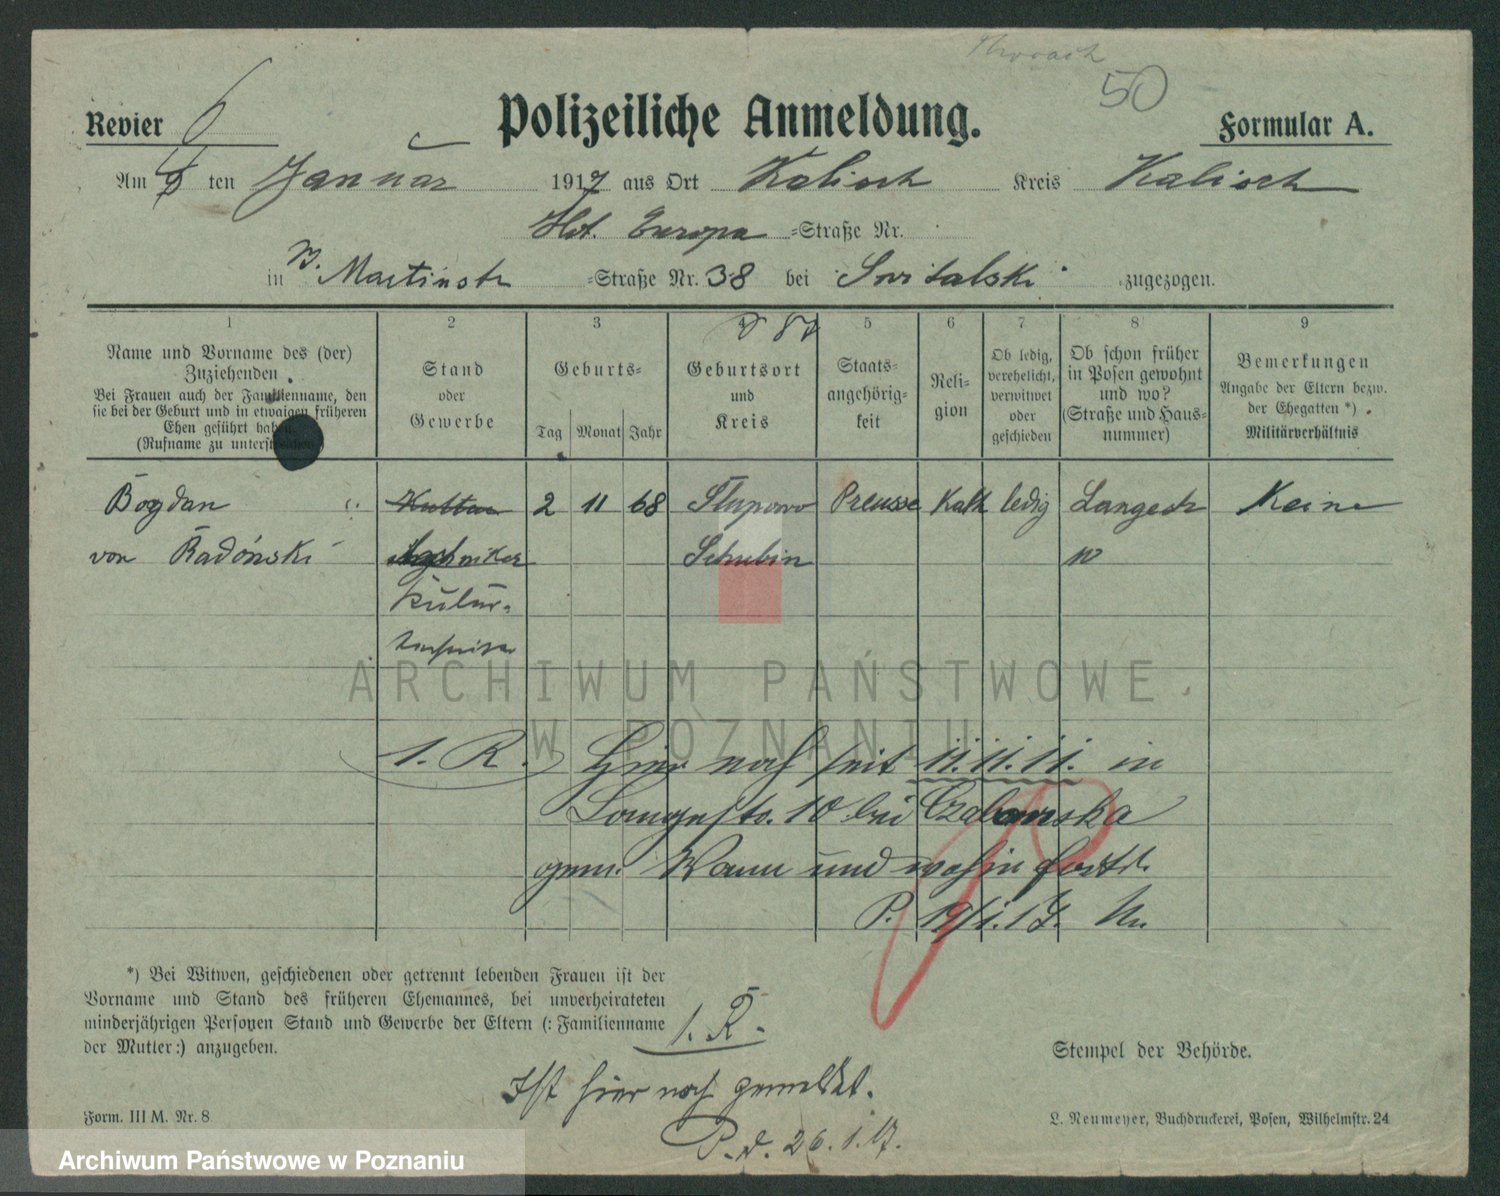 50
Revier 6
Polizeiliche Anmeldung.
Formular A.
Am ten Januar 1917 aus Ort Kalisch Kreis Kalisch
Hot. Europa =Straße Nr.
in Martinstr =Straße Nr. 38 bei Switalski zugezogen.
1
Name und Vorname des (der)
Zuziehenden
Bei Frauen auch der Familienname, den
sie bei der Geburt und in etwaigen früheren
Ehen geführt haben.
(Rufname zu unterstreichen)
2
Stand
oder
Gewerbe
3
Geburts=
Tag Monat Jahr
4
Geburtsort
und
Kreis
5
Staats=
angehörig=
keit
6
Reli=
gion
7
Ob ledig,
verehelicht,
verwitwet
oder
geschieden
8
Ob schon früher
in Posen gewohnt
und wo?
(Straße und Haus=
nummer)
9
Bemerkungen
Angabe der Eltern bezw.
der Ehegatten *)
Militärverhältnis
Bogdan 2 11 68 Słupowo Preusse Kath ledig Langestr Keine
von Radónski Techniker Schubin 10
Kultur-
techniker
ARCHIWUM PAŃSTWOWE
W POZNANIU
1. R. Hier noch seit 11.11.11. in
Langestr. 10 bei Czabanska
gem. Wann und wohin fortd.
P. 19/1.17.
*) Bei Witwen, geschiedenen oder getrennt lebenden Frauen ist der
Vorname und Stand des früheren Ehemannes, bei unverheirateten
minderjährigen Personen Stand und Gewerbe der Eltern (: Familienname
der Mutter:) anzugeben.
1. R.
Stempel der Behörde.
Ist hier noch gemeldet.
P. d. 26.1.17.
Form. III M. Nr. 8
L. Neumeyer, Buchdruckerei, Posen, Wilhelmstr. 24
Archiwum Państwowe w Poznaniu